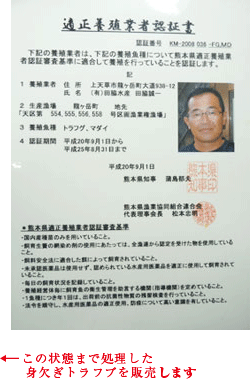 適正養殖業者認証書
認証番号 KM-2008 036 -FG,MD
下記の養殖業者は、下記の養殖魚種について熊本県適正養殖業
者認証審査基準に適合して養殖を行っていることを認証します。
記
1 養殖業者 住 所 上天草市龍ヶ岳町大道938-12
氏 名 (有)田脇水産 田脇誠一
2 生産漁場 龍ヶ岳町 地先
「天区第 554, 555, 556, 558 号区画漁業権漁場」
3 養殖魚種 トラフグ、マダイ
4 認証期間 平成20年9月1日から
平成25年8月31日まで
平成20年9月1日
熊本県知事 蒲島郁夫
熊本県漁業協同組合連合会
代表理事会長 松本忠明
●熊本県適正養殖業者認証審査基準
・国内産種苗のみを用いていること。
・飼育生簀の網染め剤の使用にあたっては、全漁連から認定を受けた物を使用してい
ること。
・飼料安全法に適合した餌によって飼育されていること。
・未承認医薬品は使用せず、認められている水産用医薬品を適正に使用して飼育されて
いること。
・毎日の飼育状況を記録していること。
・1生簀につき年1回は、出荷前の抗菌性物質の残留検査を行っていること。
←この状態まで処理した
身欠ぎトラフブを販売します